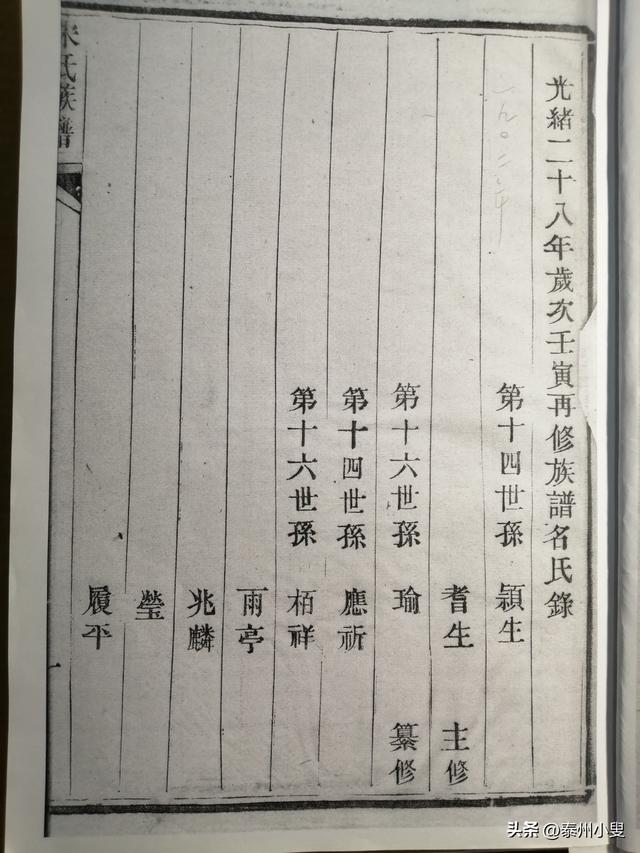 光緒二十八年歲次壬寅再修族譜名氏錄
一九〇二年
第十四世孫 頴生
耆生 主修
第十六世孫 瑜 纂修
第十四世孫 應祈
第十六世孫 栢祥
雨亭
兆麟
瑩
履平
氏族譜
一
头条 @泰州小叟